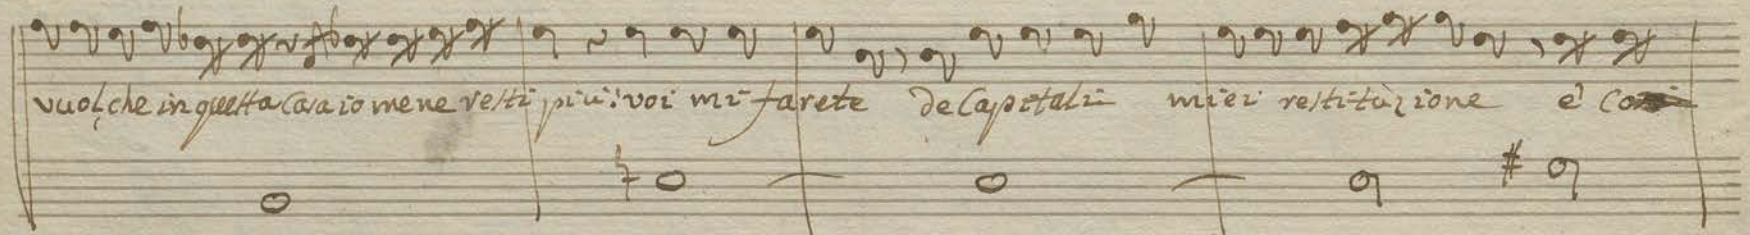 vuol, che in questa casa io me ne resti più: voi mi farete de Capitali miei restituzione e così